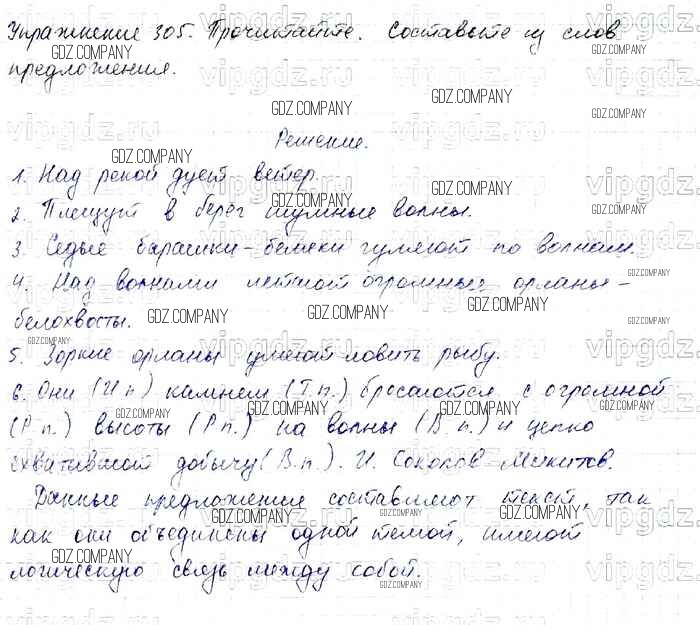 Упражнение 305. Прочитайте. Составьте из слов
предложения.
Решение.
1. Над рекой дует ветер.
2. Плещут в берег шумные волны.
3. Седые барашки-беляки гуляют по волнам.
4. Над волнами летают огромные орланы-
белохвосты.
5. Зоркие орланы умеют ловить рыбу.
6. Они (И п) камнем (Т.п.) бросаются с огромной
(Р п.) высоты (Р п.) на волны (В. п.) и цепко
схватывают добычу (В.п.). И. Соколов-Микитов.
Данные предложения составляют текст, так
как они объединены одной темой, имеют
логическую связь между собой.